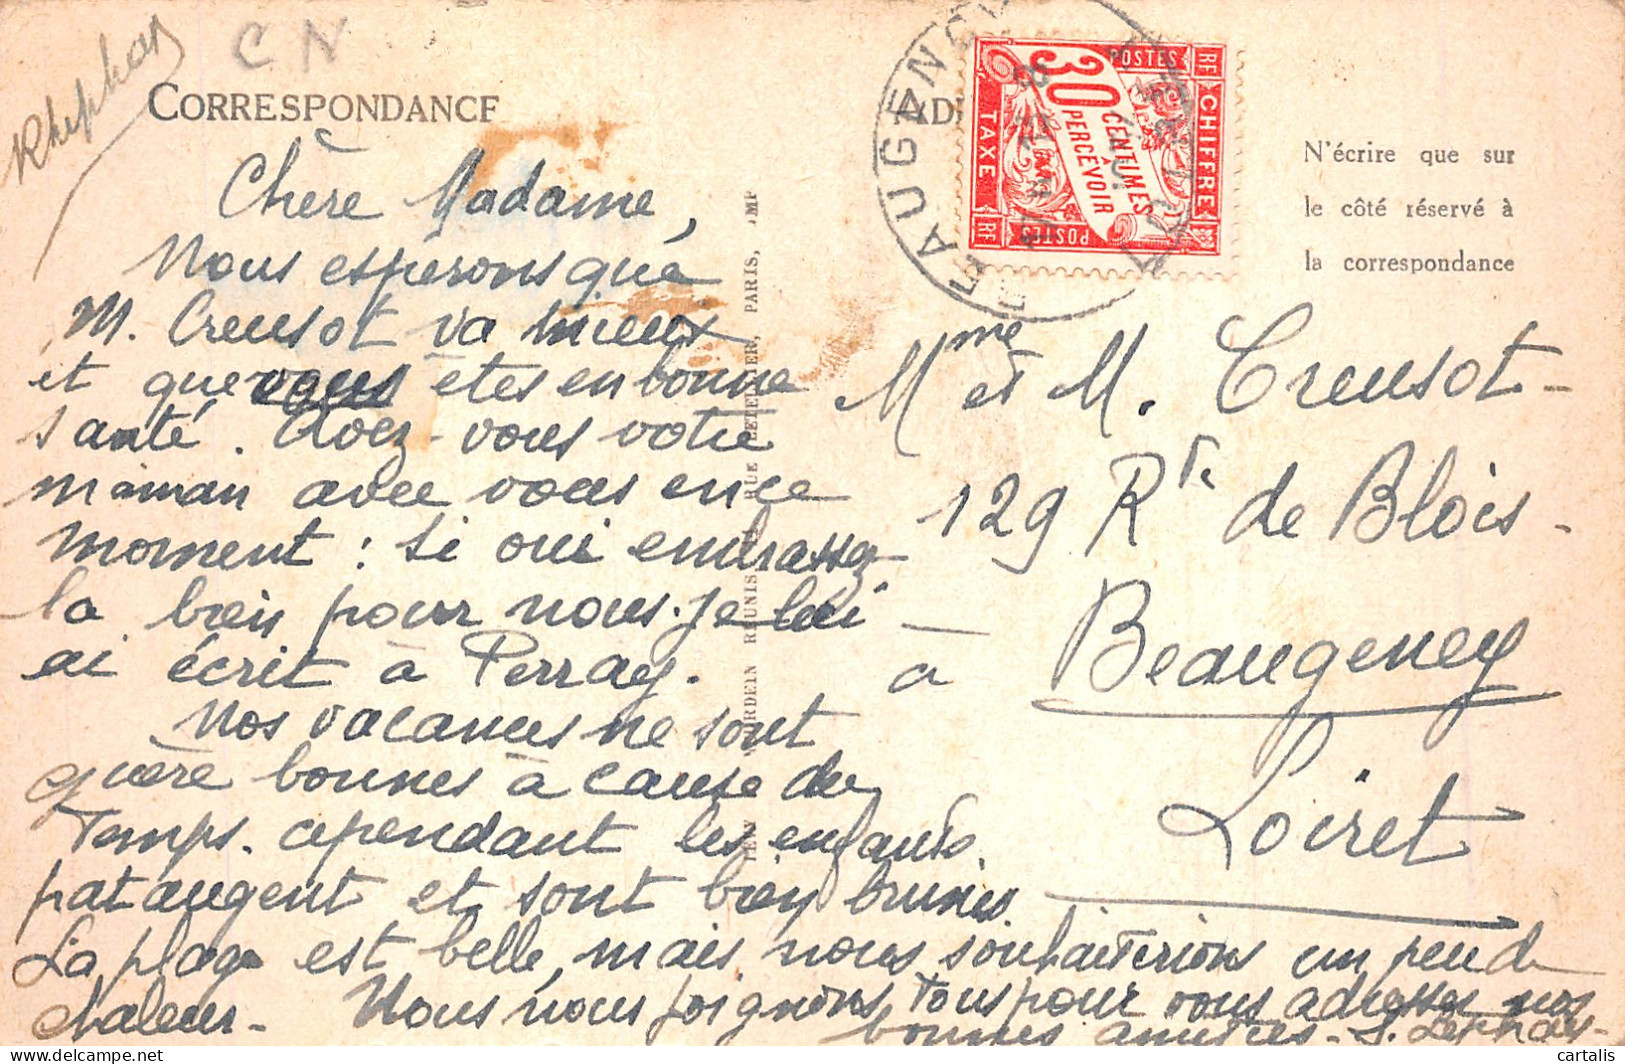 C N
CORRESPONDANCE
Chère Madame,
Nous espérons que
M. Creusot va mieux
et que vous êtes en bonne
santé. Avez-vous votre
maman avec vous en ce
moment : si oui embrassez
la bien pour nous. je lui
ai écrit à Perray.
Nos vacances ne sont
guère bonnes à cause du
temps. cependant les enfants
pataugent et sont bien brunis.
La plage est belle, mais nous souhaiterions un peu de
chaleur. Nous nous joignons tous pour vous adresser nos
bonnes amitiés.
AD
BEAUGENCY
RF POSTES
CHIFFRE
TAXE
30
CENTIMES
À
PERCEVOIR
RF POSTES
N'écrire que sur
le côté réservé à
la correspondance
Mme et M. Creusot-
129 Rte de Blois-
à Beaugency
Loiret
RÉUNIS
RUE LETELLIER, PARIS, IMP
cartalis
delcampe.net